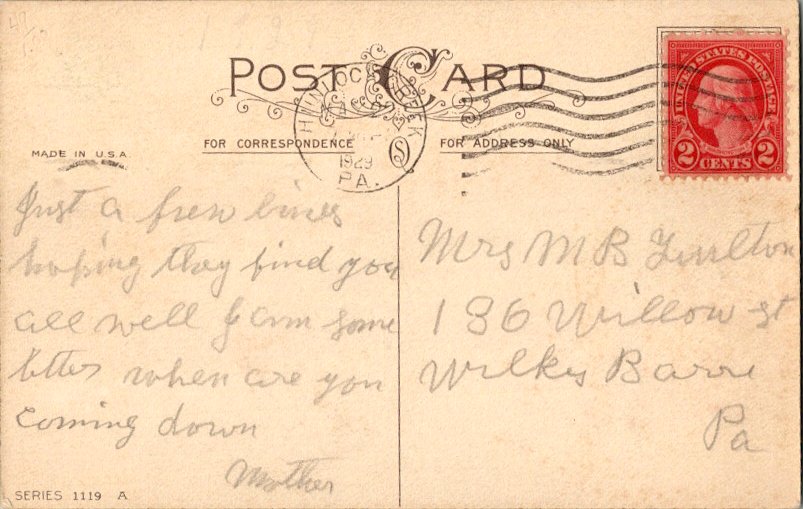 POST CARD
FOR CORRESPONDENCE
FOR ADDRESS ONLY
MADE IN U.S.A.
HUNLOCK CREEK
1929
PA.
UNITED STATES POSTAGE
2 CENTS 2
Just a few lines
hoping they find you
all well I am some
better when are you
coming down
Mother
Mrs M B
136 Willow st
Wilkes Barre
Pa
SERIES 1119 A